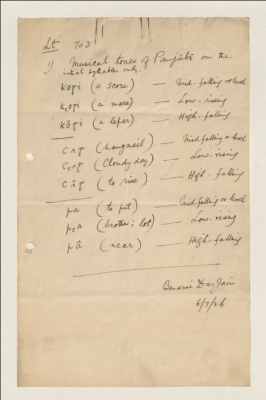 Lt 703
1) Musical tones of Panjābi on the
initial syllables only.
koṛi (a score) — Mid-falling or level
(a mare) — Low-rising
(a leper) — High-falling
(hangnail) — Mid falling or level
(Cloudy day) — Low-rising
(to rise) — High-falling
pa (to put) — Mid falling or level
(brother; lot) — Low-rising
pâ (near) — High-falling
Banarsi Das Jain
6/7/26